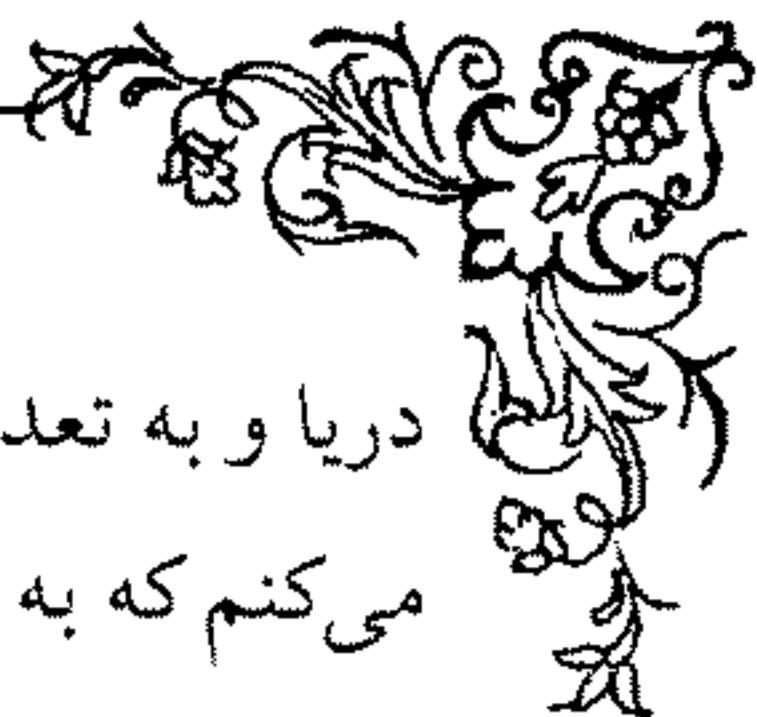 دریا و به تعد
می‌کنم که به